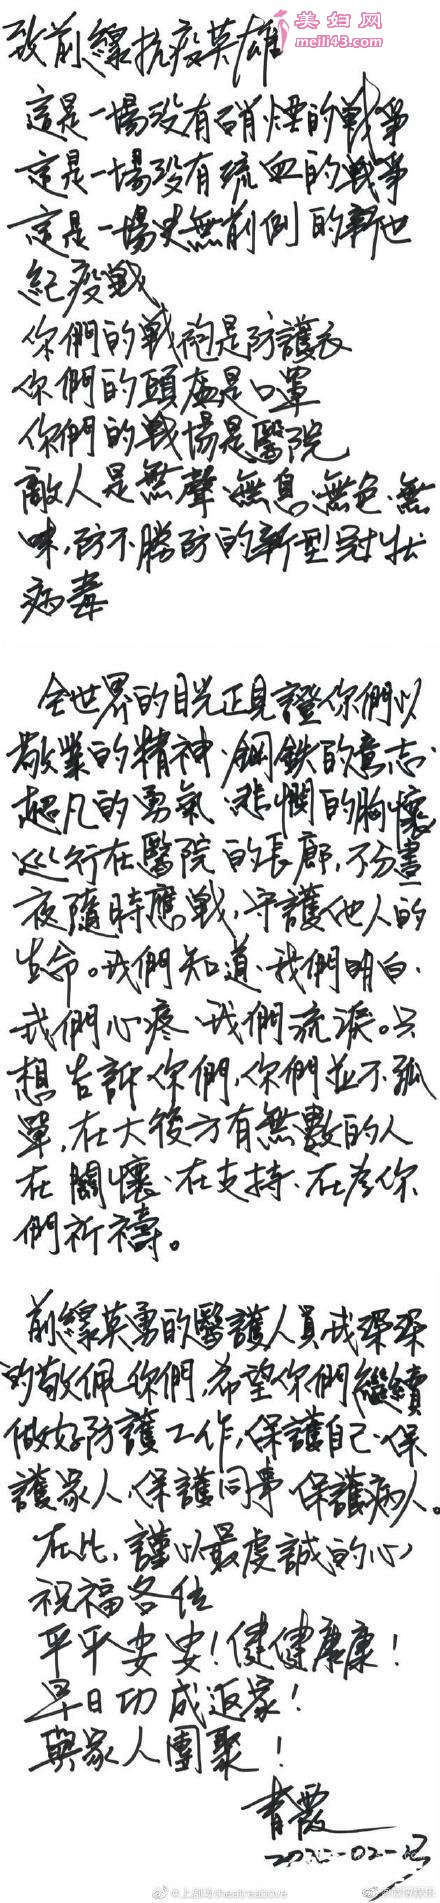 美妇网
meili43.com
致前線抗疫英雄
這是一場沒有硝煙的戰爭
這是一場沒有流血的戰爭
這是一場史無前例的新世
紀疫戰
你們的戰袍是防護衣
你們的頭盔是口罩
你們的戰場是醫院
敵人是無聲、無息、無色、無
味，防不勝防的新型冠狀
病毒
全世界的目光正見證你們以
敬業的精神、鋼鐵的意志、
超凡的勇氣、悲憫的胸懷
巡行在醫院的長廊，不分晝
夜隨時應戰，守護他人的
生命。我們知道、我們明白、
我們心疼、我們流淚。只
想告訴你們，你們並不孤
單，在大後方有無數的人
在關懷、在支持、在為你
們祈禱。
前線英勇的醫護人員，我深深
的敬佩你們，希望你們繼續
做好防護工作，保護自己、保
護家人、保護同事、保護病人。
在此，謹以最虔誠的心
祝福各位
平平安安！健健康康！
早日功成返家！
與家人團聚！
青霞
2020-02-
@上剧场theatreabove